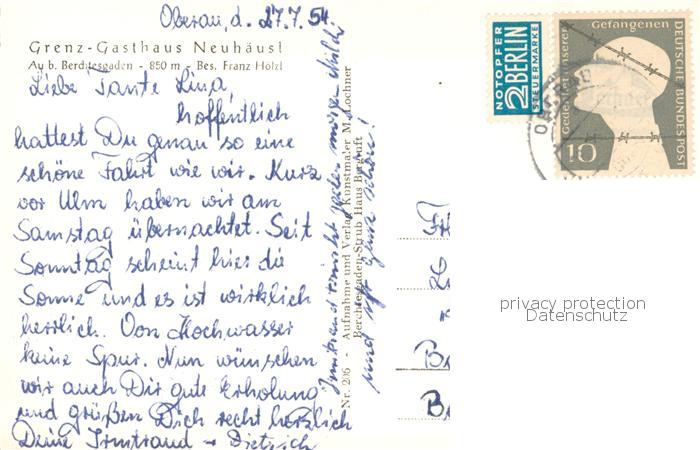 Oberau, d. 27.7.54.
Grenz-Gasthaus Neuhäusl
Au b. Berchtesgaden - 850 m - Bes. Franz Hölzl
Liebe Tante Lina,
hoffentlich
hattest Du genau so eine
schöne Fahrt wie wir. Kurz
vor Ulm haben wir am
Samstag übernachtet. Seit
Sonntag scheint hier die
Sonne und es ist wirklich
herrlich. Von Hochwasser
keine Spur. Nun wünschen
wir auch Dir gute Erholung
und grüßen Dich recht herzlich
Deine Irmtraud + Dietrich
Irmtraud trinkt jeden morgen Milch
und ist ganz schön!
Nr. 206 - Aufnahme und Verlag Kunstmaler M. Lochner
Berchtesgaden-Strub Haus Bergluft
NOTOPFER
2 BERLIN
STEUERMARKE
Gedenket unserer Gefangenen
DEUTSCHE BUNDESPOST
10
26
B
B
privacy protection
Datenschutz